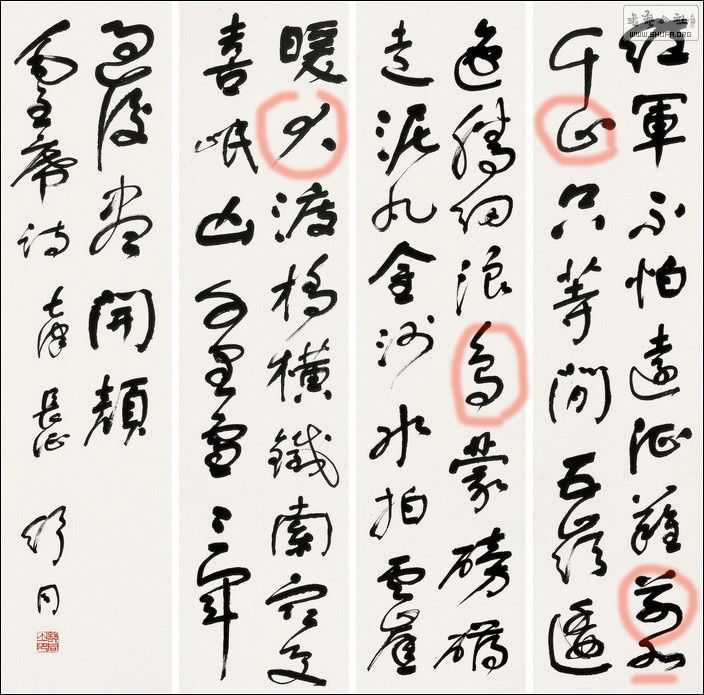 紅軍不怕遠征難萬水
千山只等閒五嶺逶
迤騰細浪烏蒙磅礴
走泥丸金沙水拍雲崖
暖大渡橋橫鐵索寒更
喜岷山千里雪三軍
過後盡開顏
毛主席詩 七律 長征 舒同
WWW.SHUFA.ORG